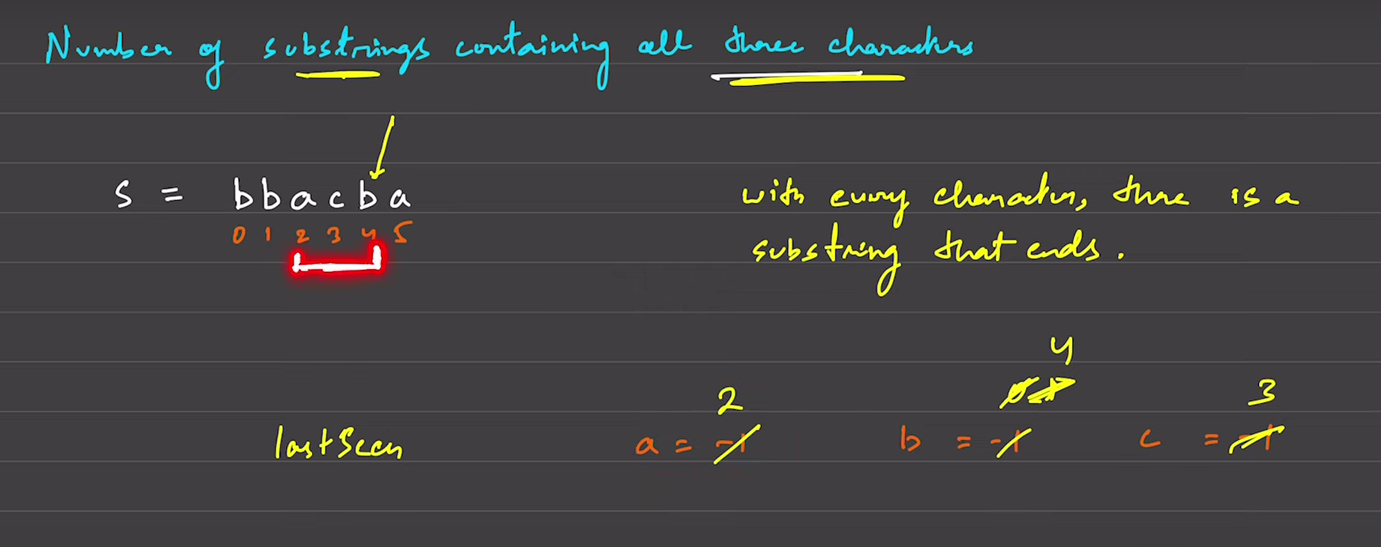 Number of substrings containing all three characters
s = b b a c b a
0 1 2 3 4 5
with every character, there is a
substring that ends.
4
2 3
lastSeen a = -1 b = -1 c = -1